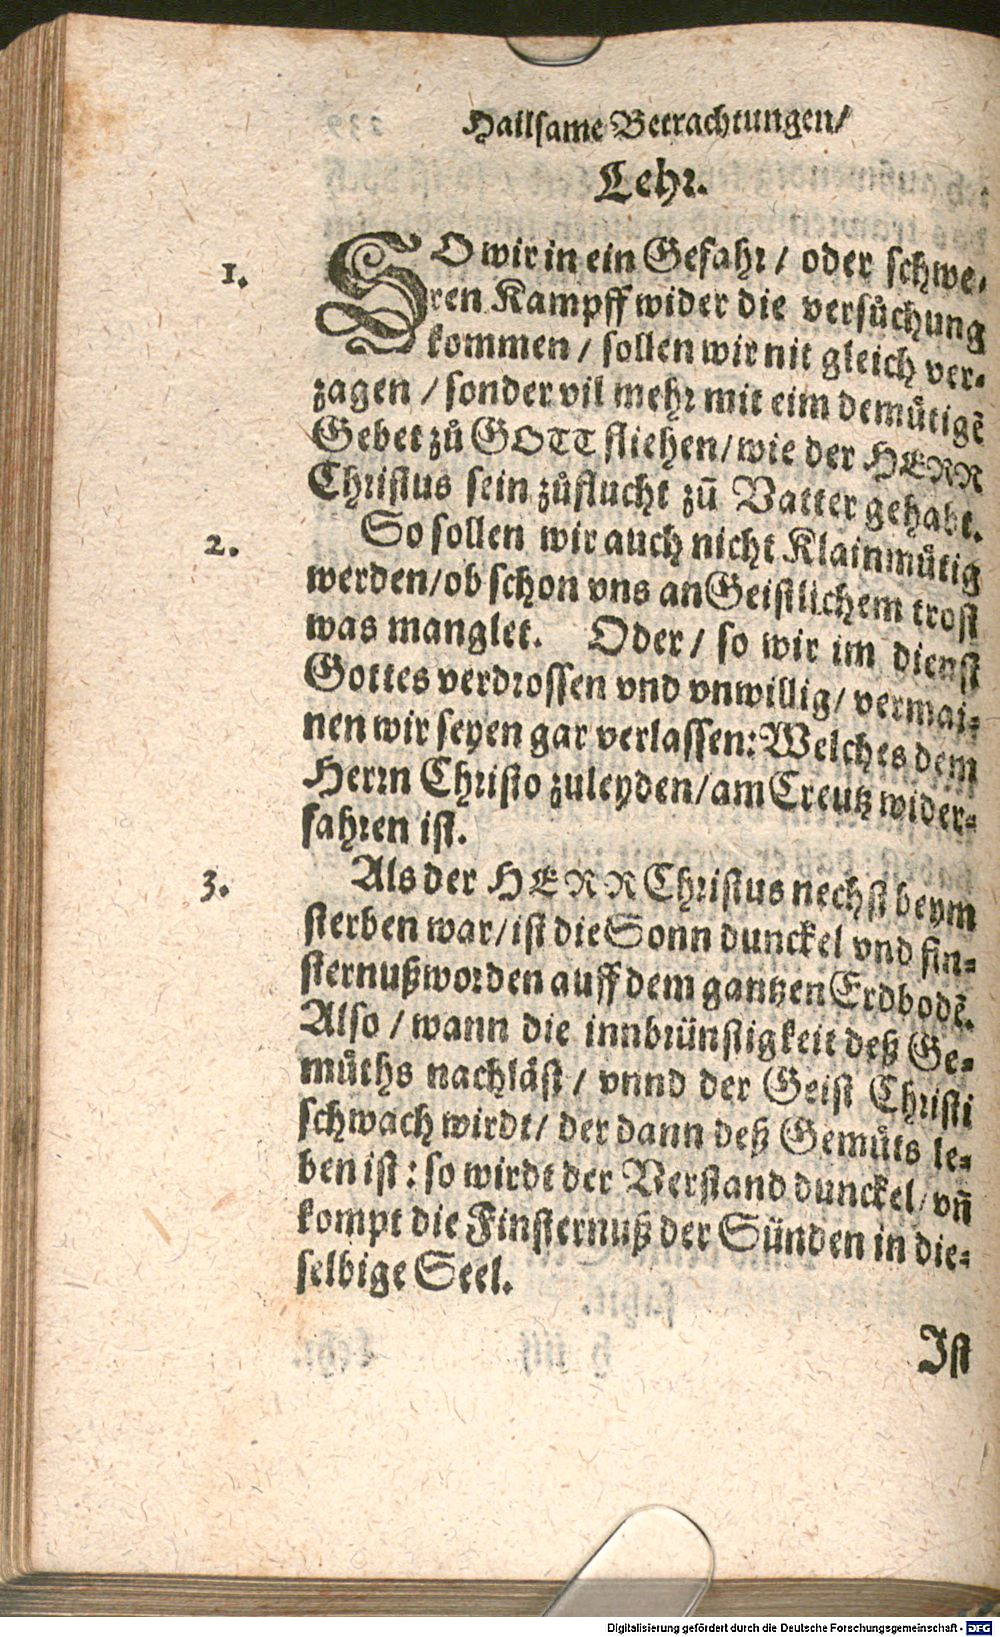 Hailsame Betrachtungen/
Lehr.
1. SO wir in ein Gefahr / oder schwe-
ren Kampff wider die versůchung
kommen / sollen wir nit gleich ver-
zagen / sonder vil mehr mit eim demůtigē
Gebet zů GOTT fliehen/ wie der HERR
Christus sein zůflucht zū Vatter gehabt.
2. So sollen wir auch nicht Klainmůtig
werden/ ob schon vns an Geistlichem trost
was manglet. Oder / so wir im dienst
Gottes verdrossen vnd vnwillig/ vermai-
nen wir seyen gar verlassen: Welches dem
Herrn Christo zuleyden/ am Creutz wider-
fahren ist.
3. Als der HERR Christus nechst beym
sterben war/ ist die Sonn dunckel vnd fin-
sternuß worden auff dem gantzen Erdbodē.
Also / wann die innbrünstigkeit deß Ge-
můths nachläst / vnnd der Geist Christi
schwach wirdt/ der dann deß Gemůts le-
ben ist : so wirdt der Verstand dunckel/ vñ
kompt die Finsternuß der Sünden in die-
selbige Seel.
Ist
Digitalisierung gefördert durch die Deutsche Forschungsgemeinschaft - DFG